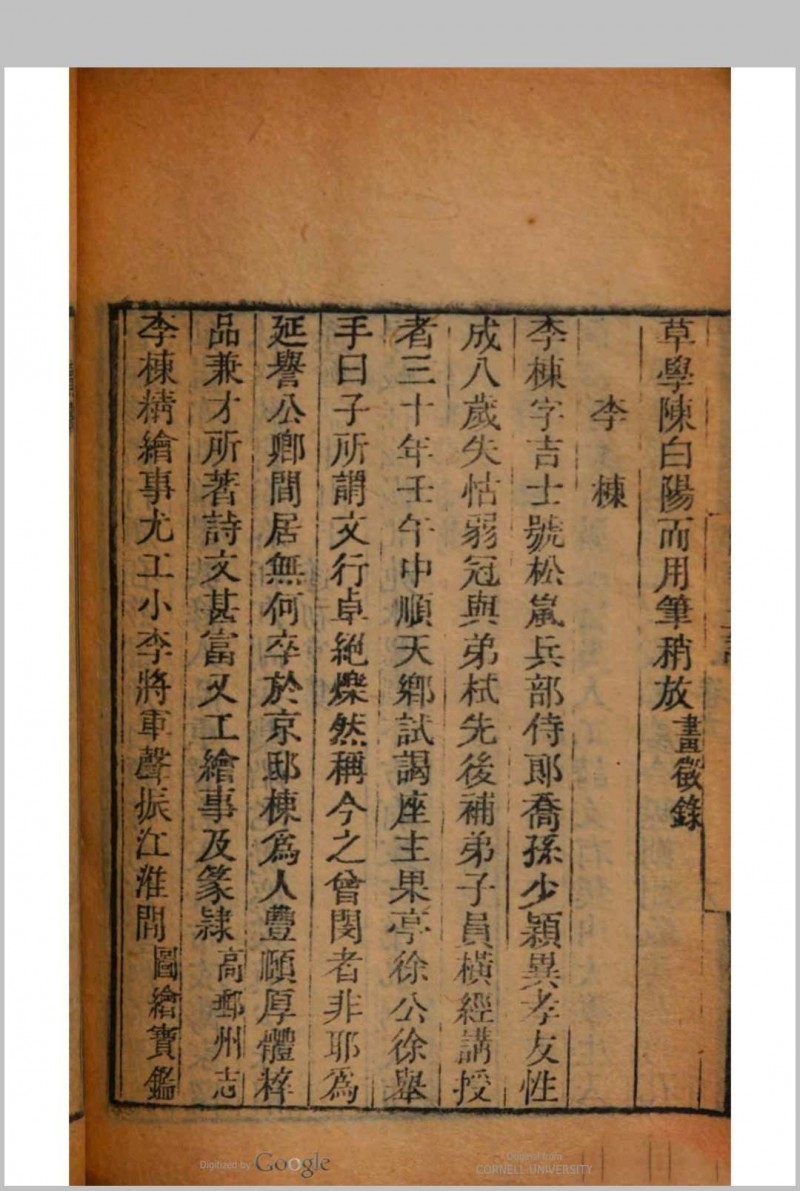 草學陳白陽而用筆稍放畫徵錄
李棟
李棟字吉士號松嵐兵部侍郎喬孫少穎異孝友性
成八歲失怙弱冠與弟栻先後補弟子員橫經講授
者三十年壬午中順天鄉試謁座主果亭徐公徐舉
手曰子所謂文行卓絕爍然稱今之曾閔者非耶爲
延譽公卿間居無何卒於京邸棟爲人豐頤厚體粹
品兼才所著詩文甚富又工繪事及篆隸高郵州志
李棟精繪事尤工小李將軍聲振江淮間圖繪寶鑑
Digitized by Google
Original from
CORNELL UNIVERSITY